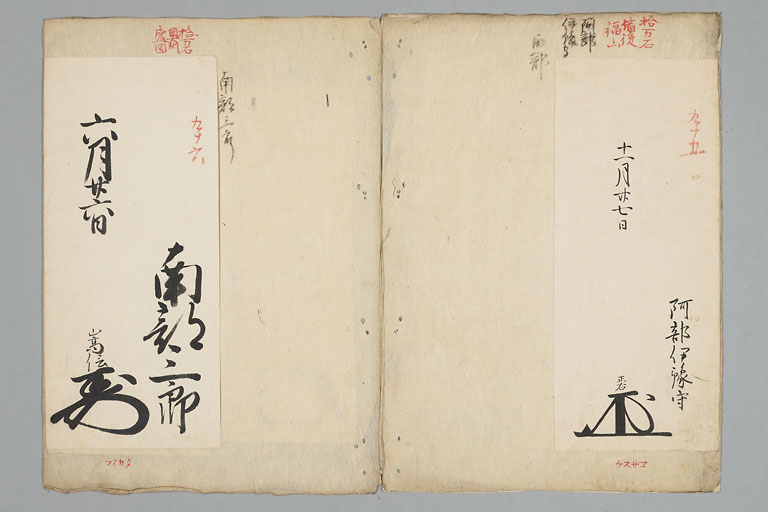 拾万石
備後
福山
阿部
伊豫守
阿部
九十五
十一月廿七日
阿部伊豫守
正右
拾万石
奥州
盛岡
南部三郎
九十六
六月廿六日
南部三郎